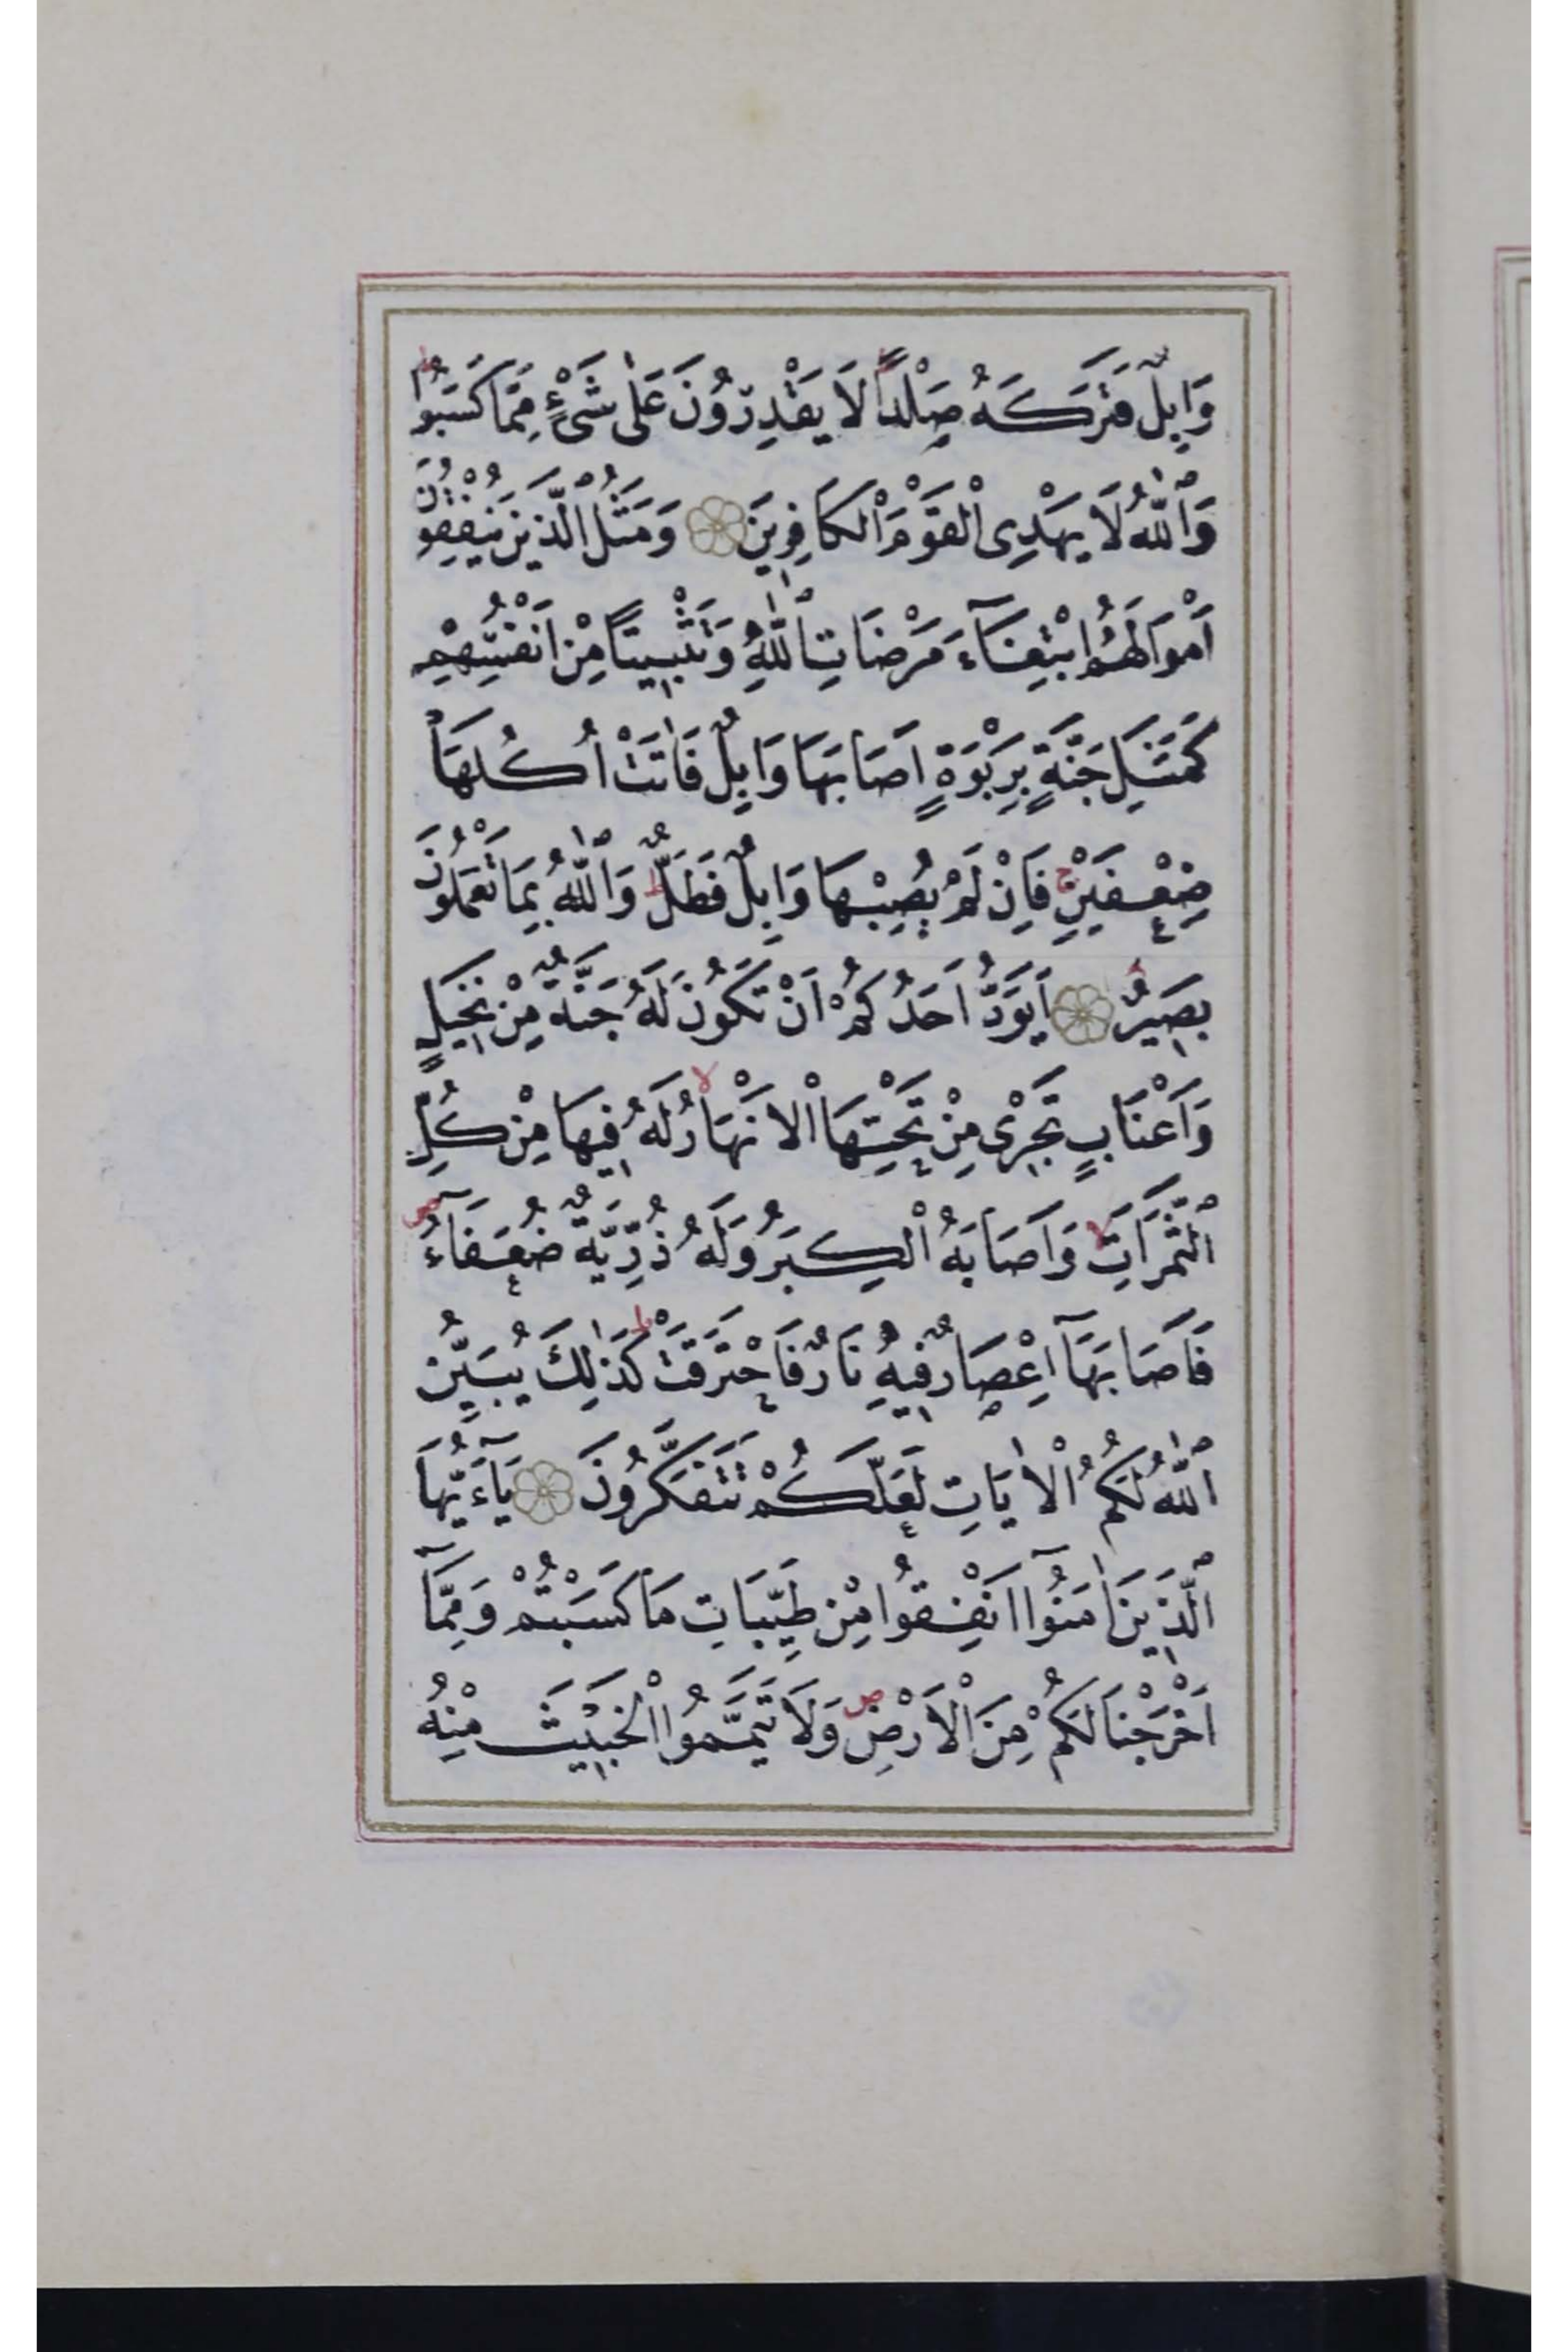 وَابِلٌ فَتَرَكَهُ صَلْدًا لَا يَقْدِرُونَ عَلٰى شَىْءٍ مِمَّا كَسَبُوا
وَٱللّٰهُ لَا يَهْدِى ٱلْقَوْمَ ٱلْكَافِرِينَ وَمَثَلُ ٱلَّذِينَ يُنْفِقُونَ
اَمْوَالَهُمُ ابْتِغَآءَ مَرْضَاتِ ٱللّٰهِ وَتَثْبِيتًا مِنْ اَنْفُسِهِمْ
كَمَثَلِ جَنَّةٍ بِرَبْوَةٍ اَصَابَهَا وَابِلٌ فَاٰتَتْ اُكُلَهَا
ضِعْفَيْنِ فَاِنْ لَمْ يُصِبْهَا وَابِلٌ فَطَلٌّ وَٱللّٰهُ بِمَا تَعْمَلُونَ
بَصِيرٌ اَيَوَدُّ اَحَدُكُمْ اَنْ تَكُونَ لَهُ جَنَّةٌ مِنْ نَخِيلٍ
وَاَعْنَابٍ تَجْرِى مِنْ تَحْتِهَا ٱلْاَنْهَارُ لَهُ فِيهَا مِنْ كُلِّ
ٱلثَّمَرَاتِ وَاَصَابَهُ ٱلْكِبَرُ وَلَهُ ذُرِّيَّةٌ ضُعَفَآءُ
فَاَصَابَهَآ اِعْصَارٌ فِيهِ نَارٌ فَاحْتَرَقَتْ كَذٰلِكَ يُبَيِّنُ
ٱللّٰهُ لَكُمُ ٱلْاٰيَاتِ لَعَلَّكُمْ تَتَفَكَّرُونَ يَآءَيُّهَا
ٱلَّذِينَ اٰمَنُوٓا اَنْفِقُوا مِنْ طَيِّبَاتِ مَا كَسَبْتُمْ وَمِمَّآ
اَخْرَجْنَا لَكُمْ مِنَ ٱلْاَرْضِ وَلَا تَيَمَّمُوا ٱلْخَبِيثَ مِنْهُ